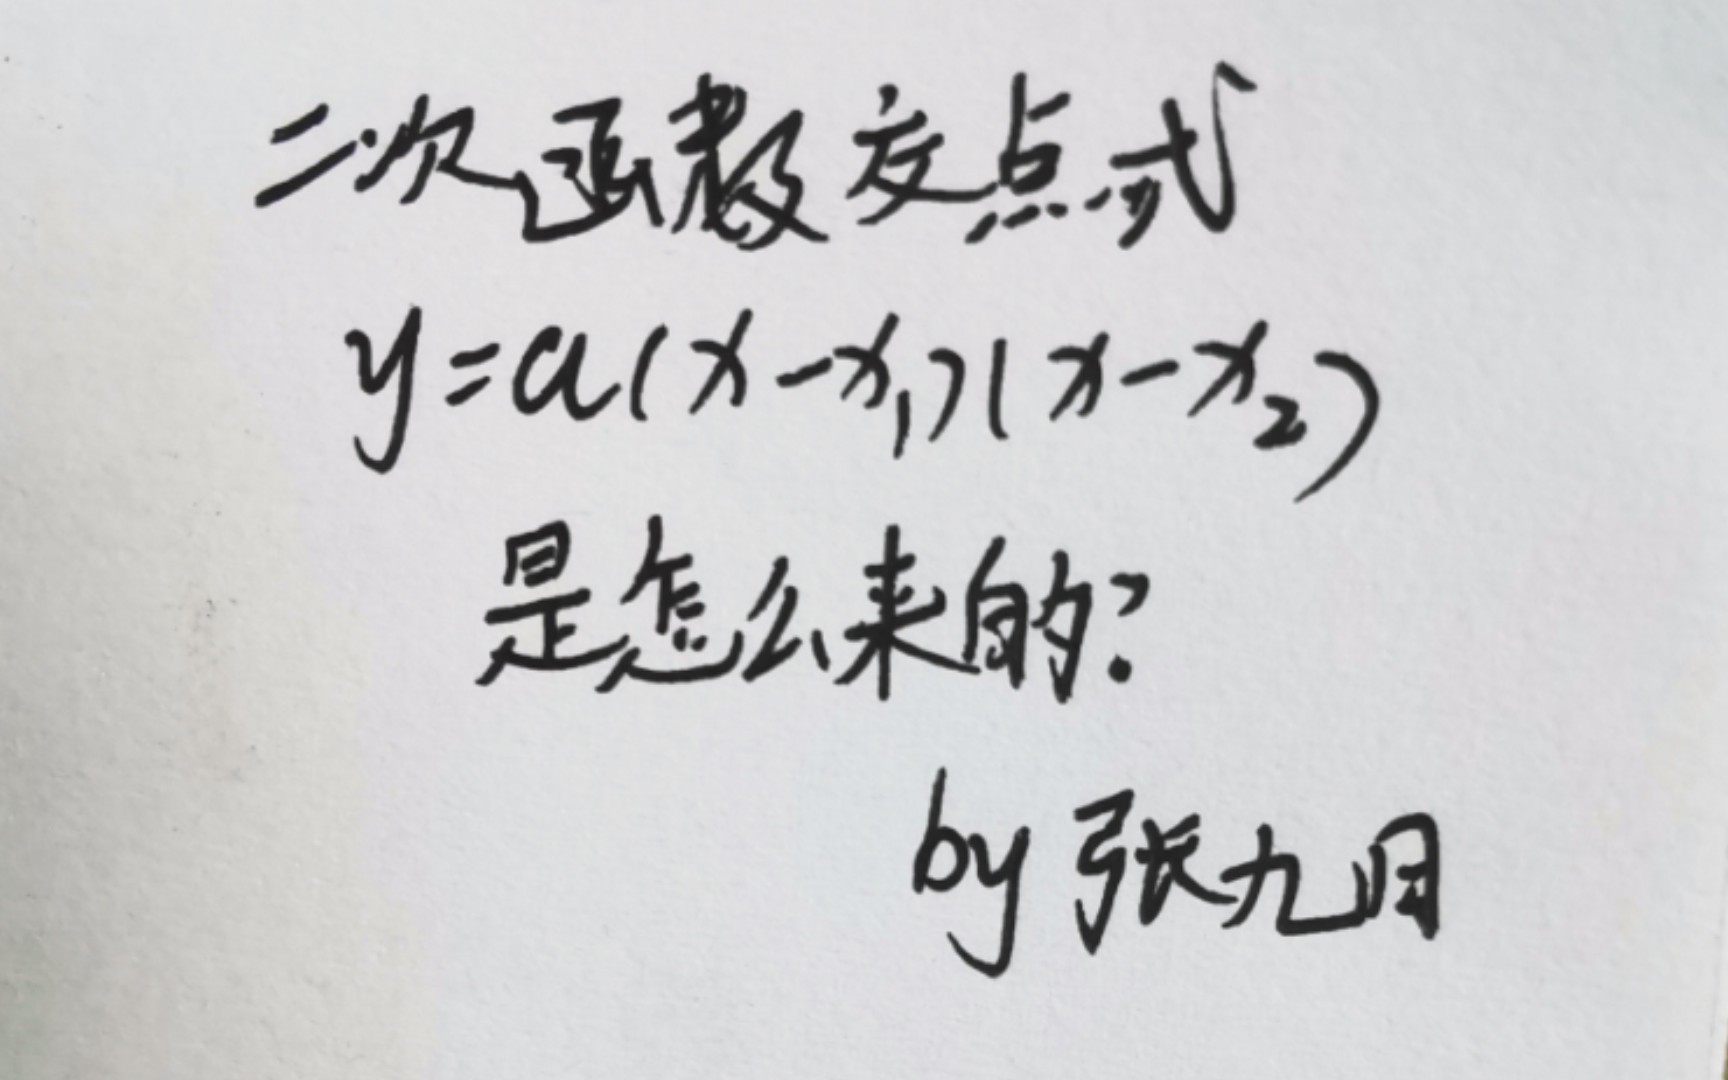 二次函数交点式
y=a(x-x₁)(x-x₂)
是怎么来的?
by 张九月